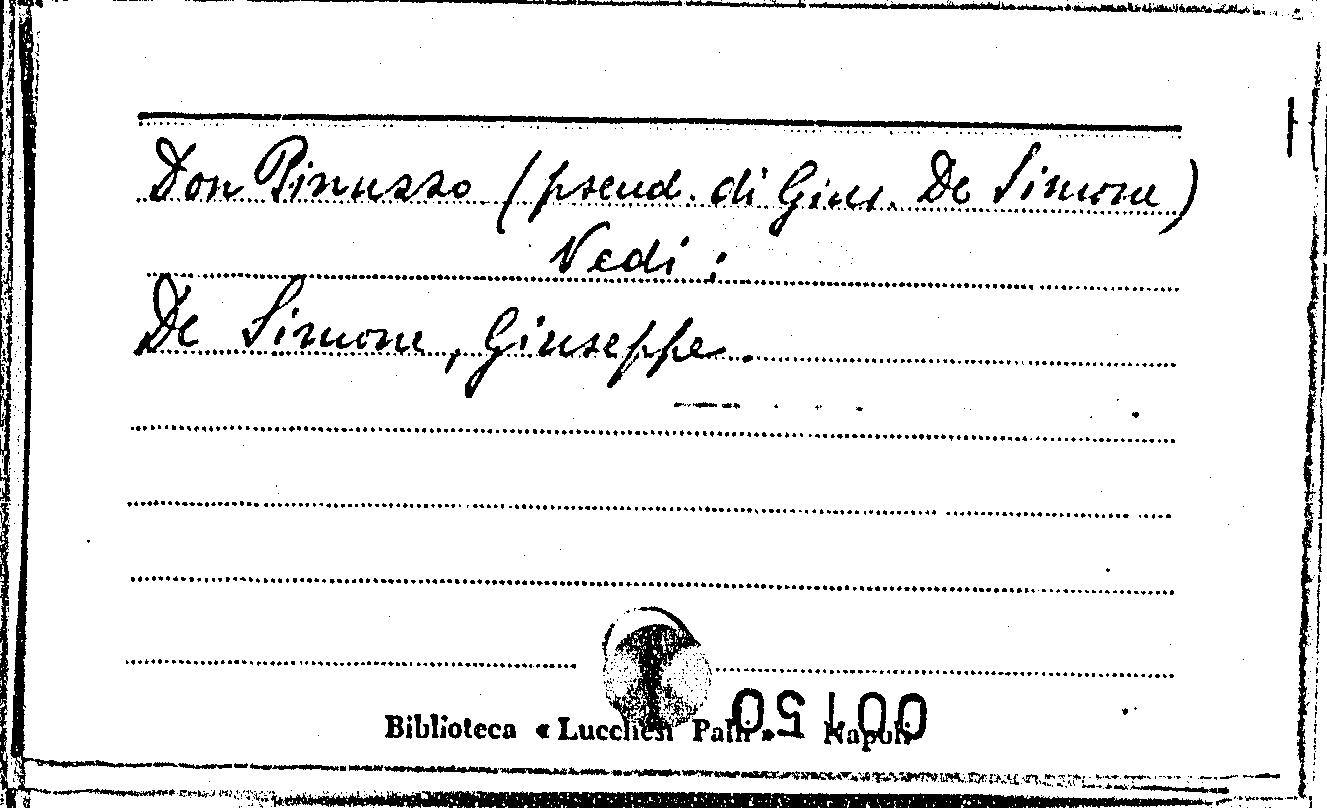 Don Pinuzzo (pseud. di Gius. De Simone)
Vedi:
De Simone, Giuseppe.
00150
Biblioteca « Lucchesi Palli » Napoli